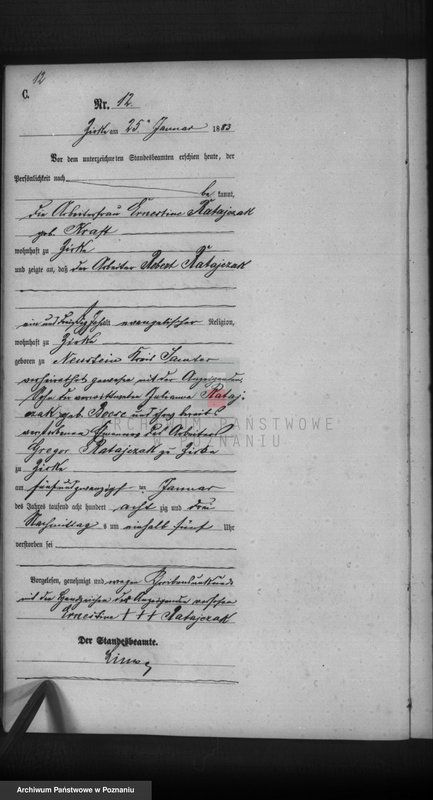 12
C.
Nr. 12.
Zirke am 25n Januar 1883
Vor dem unterzeichneten Standesbeamten erschien heute, der
Persönlichkeit nach
be kannt,
die Arbeiterfrau Ernestine Ratajczak
geb. Kraft
wohnhaft zu Zirke
und zeigte an, daß der Arbeiter Robert Ratajczak
ein und Jahr alt evangelischer Religion,
wohnhaft zu Zirke
geboren zu Neustein Kreis Samter
verheirathet gewesen mit der Anzeigenden,
Sohn der verwittweten Julianna Rataj-
czak geb. und bereits
verstorbenen des Arbeiters
Gregor Ratajczak zu Zirke
zu Zirke
am fünfundzwanzigsten Januar
des Jahres tausend acht hundert achtzig und drei
Nachmittags um einhalb fünf Uhr
verstorben sei
Vorgelesen, genehmigt und wegen Schreibensunkunde
mit den Handzeichen der Anzeigenden versehen
Ernestine + + + Ratajczak
Der Standesbeamte.
ARCHIWUM PAŃSTWOWE
W POZNANIU
Archiwum Państwowe w Poznaniu